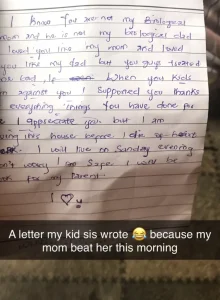 I know You are not my Biological
mom and he is not my biological dad
I loved you like my mom and loved
you like my dad but you guys treated
me bad. When You kids
against you I supported you thanks
everything things You have done for
I appreciate you but I am
this house before I die of
I will live on Sunday evening
worry I Safe I will be
for my Parent
I ♡ u
A letter my kid sis wrote 😂 because my
mom beat her this morning